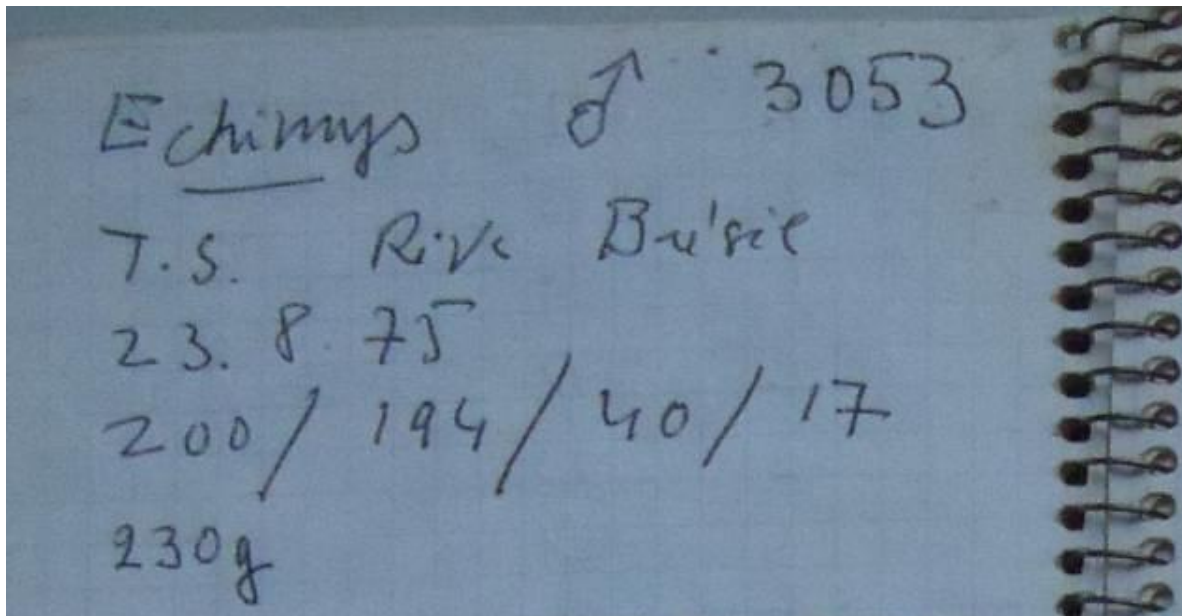 Echimys ♂ 3053
T.S. Rive Brésil
23. 8. 75
200 / 194 / 40 / 17
230g